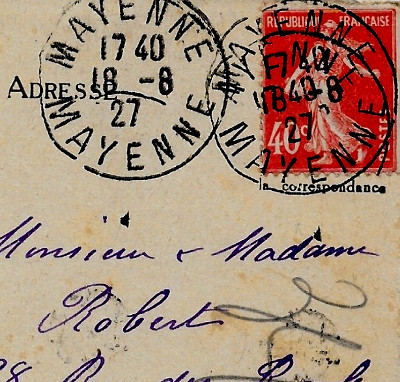 MAYENNE
17 40
18 -8
27
MAYENNE
RÉPUBLIQUE FRANÇAISE
MAYENNE
17 40
18 -8
27
MAYENNE
40c
POSTES
ADRESSE
la correspondance
Monsieur & Madame
Robert